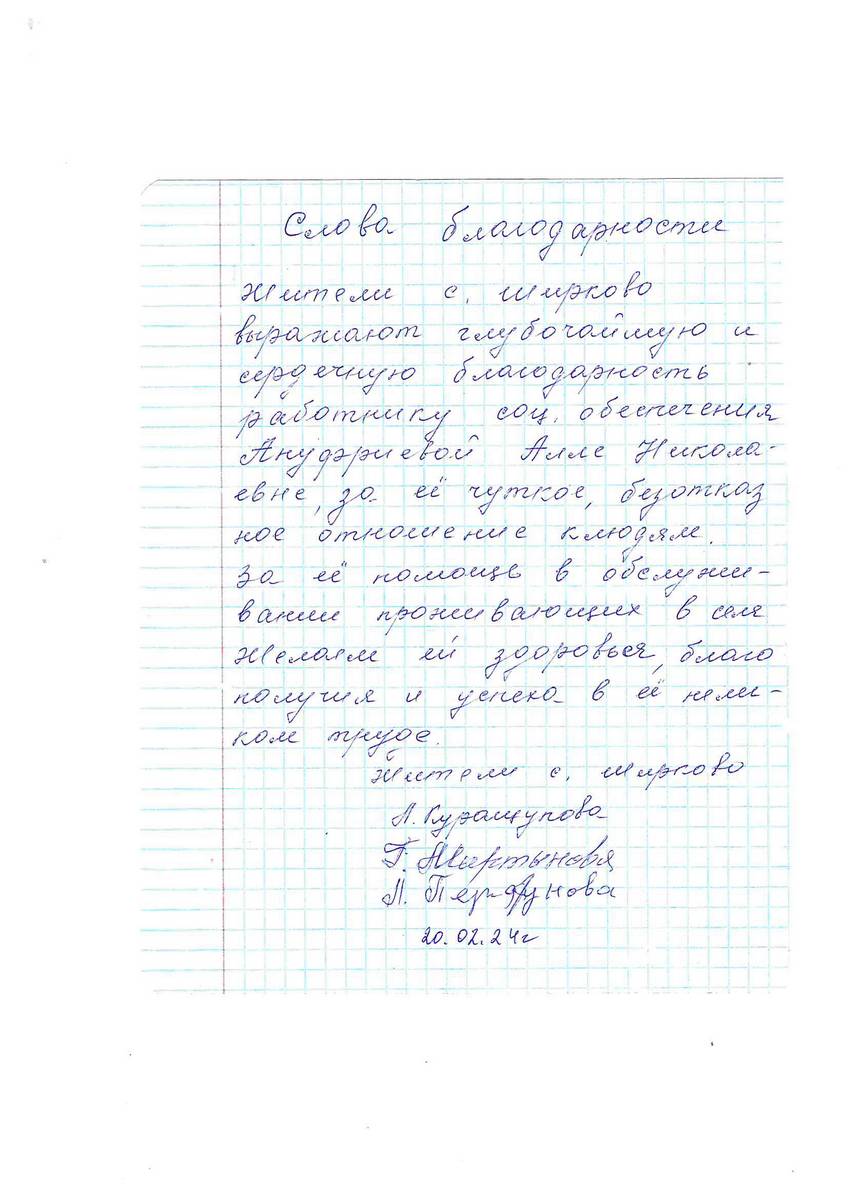 Слова благодарности
Жители с. ширково
выражают глубочайшую и
сердечную благодарность
работнику соц. обеспечения
Ануфриевой Алле Никола-
евне, за её чуткое, безотказ
ное отношение клюдям.
За её помощь в обслужи-
вании проживающих в селе
Желаем ей здоровья, благо
получия и успеха в её нели-
ком труде.
Жители с. ширково
Л. Куращупова
Г. Мартынова
Л. Перфунова
20.02.24г